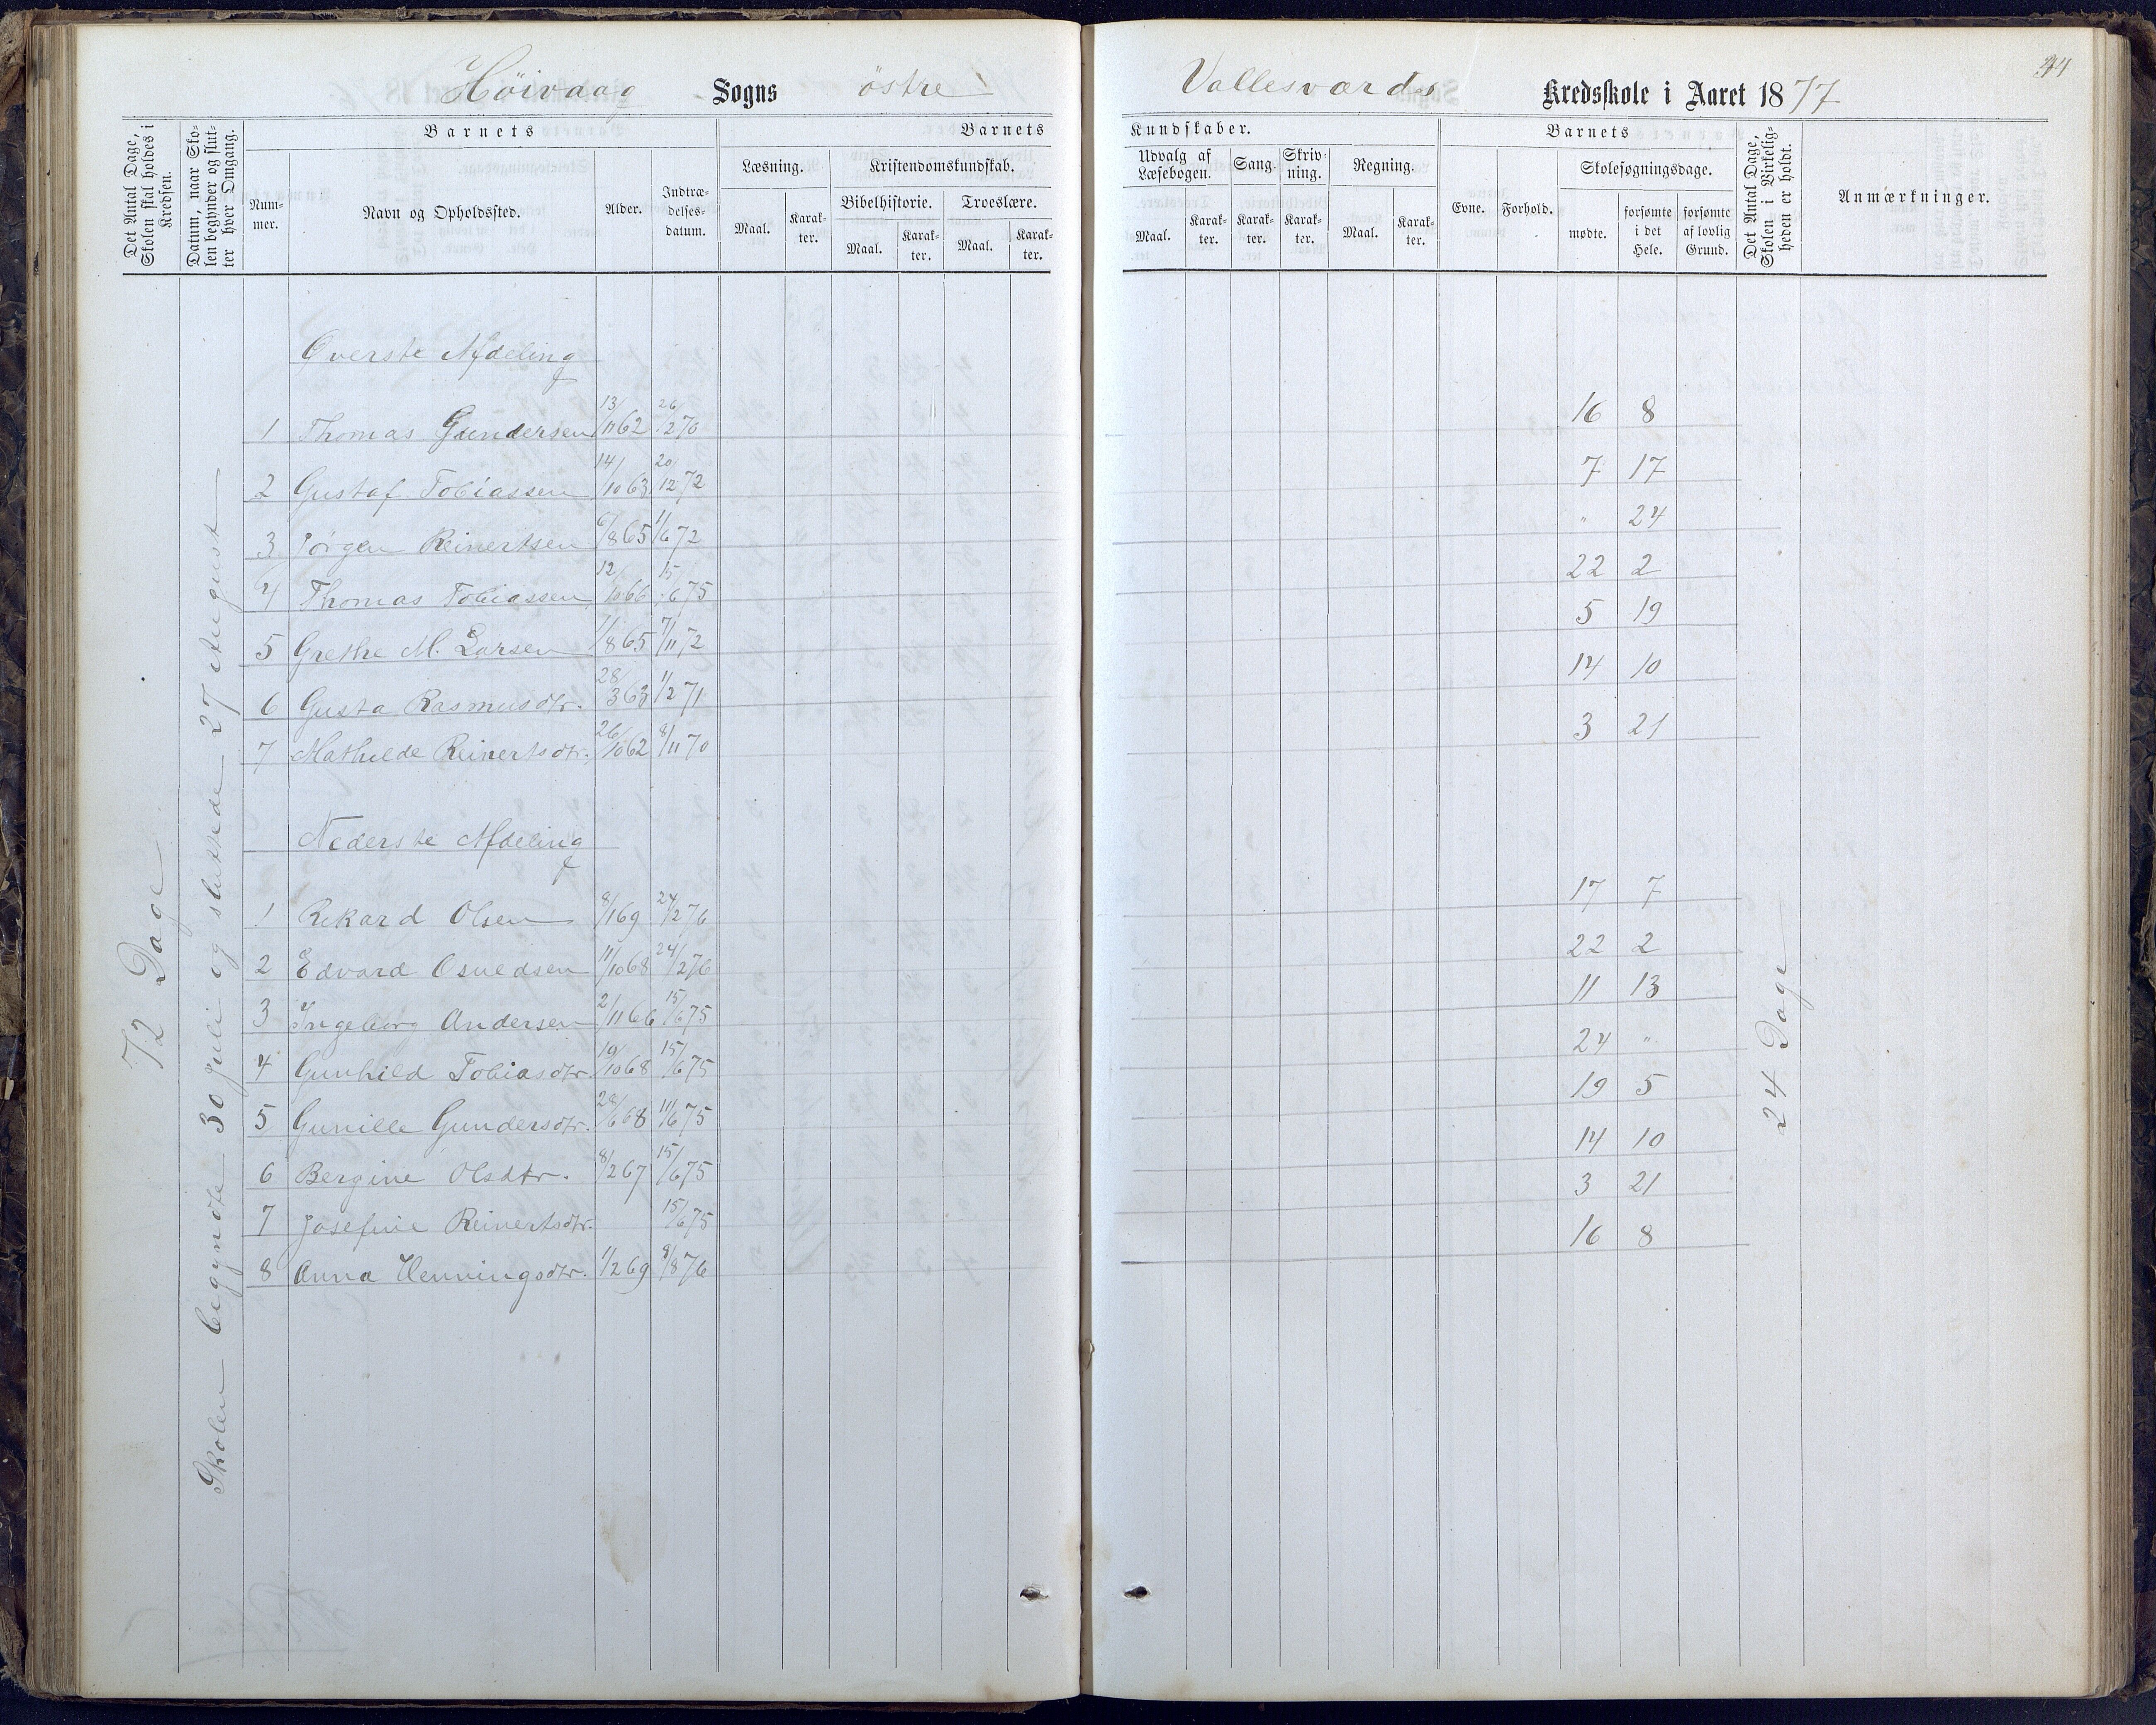 Høivaag Sogns østre Vallesværds Kredsskole i Aaret 1877
44
Det Antal Dage, Skolen skal holdes i Kredsen.
Datum, naar Skolen begynder og slutter hver Omgang.
Barnets
Nummer.
Navn og Opholdssted.
Alder.
Indtrædelsesdatum.
Barnets
Læsning.
Maal.
Karakter.
Kristendomskundskab.
Bibelhistorie.
Maal.
Karakter.
Troeslære.
Maal.
Karakter.
Kundskaber.
Udvalg af Læsebogen.
Maal.
Karakter.
Sang.
Karakter.
Skrivning.
Karakter.
Regning.
Maal.
Karakter.
Barnets
Evne.
Forhold.
Skolesøgningsdage.
mødte.
forsømte i det Hele.
forsømte af lovlig Grund.
Det Antal Dage, Skolen i Virkeligheden er holdt.
Anmærkninger.
72 Dage
Skolen begyndte 30 Juli og sluttede 27 August
Øverste Afdeling
1 Thomas Gundersen 13/11 62 26/2 70 16 8
2 Gustaf Tobiassen 14/10 63 20/12 72 7 17
3 Jörgen Reinertsen 6/8 65 1/6 72 " 24
4 Thomas Tobiassen 12/10 66 15/6 75 22 2
5 Grethe M. Larsen 1/8 65 7/11 72 5 19
6 Gusta Rasmusdtr. 28/3 63 1/2 71 14 10
7 Mathilde Reinertsdtr. 26/10 62 8/11 70 3 21
Nederste Afdeling
1 Rikard Olsen 8/1 69 24/2 76 17 7
2 Edvard Osuldsen 11/10 68 24/2 76 22 2
3 Ingeborg Andersen 2/11 66 15/6 75 11 13
4 Gunhild Tobiasdtr. 19/10 68 15/6 75 24 "
5 Gunille Gundersdtr. 28/6 68 11/6 75 19 5
6 Bergine Olsdtr. 8/2 67 15/6 75 14 10
7 Josefine Reinertsdtr. 15/6 75 3 21
8 Anna Henningsdtr. 1/2 69 8/8 76 16 8
24 Dage